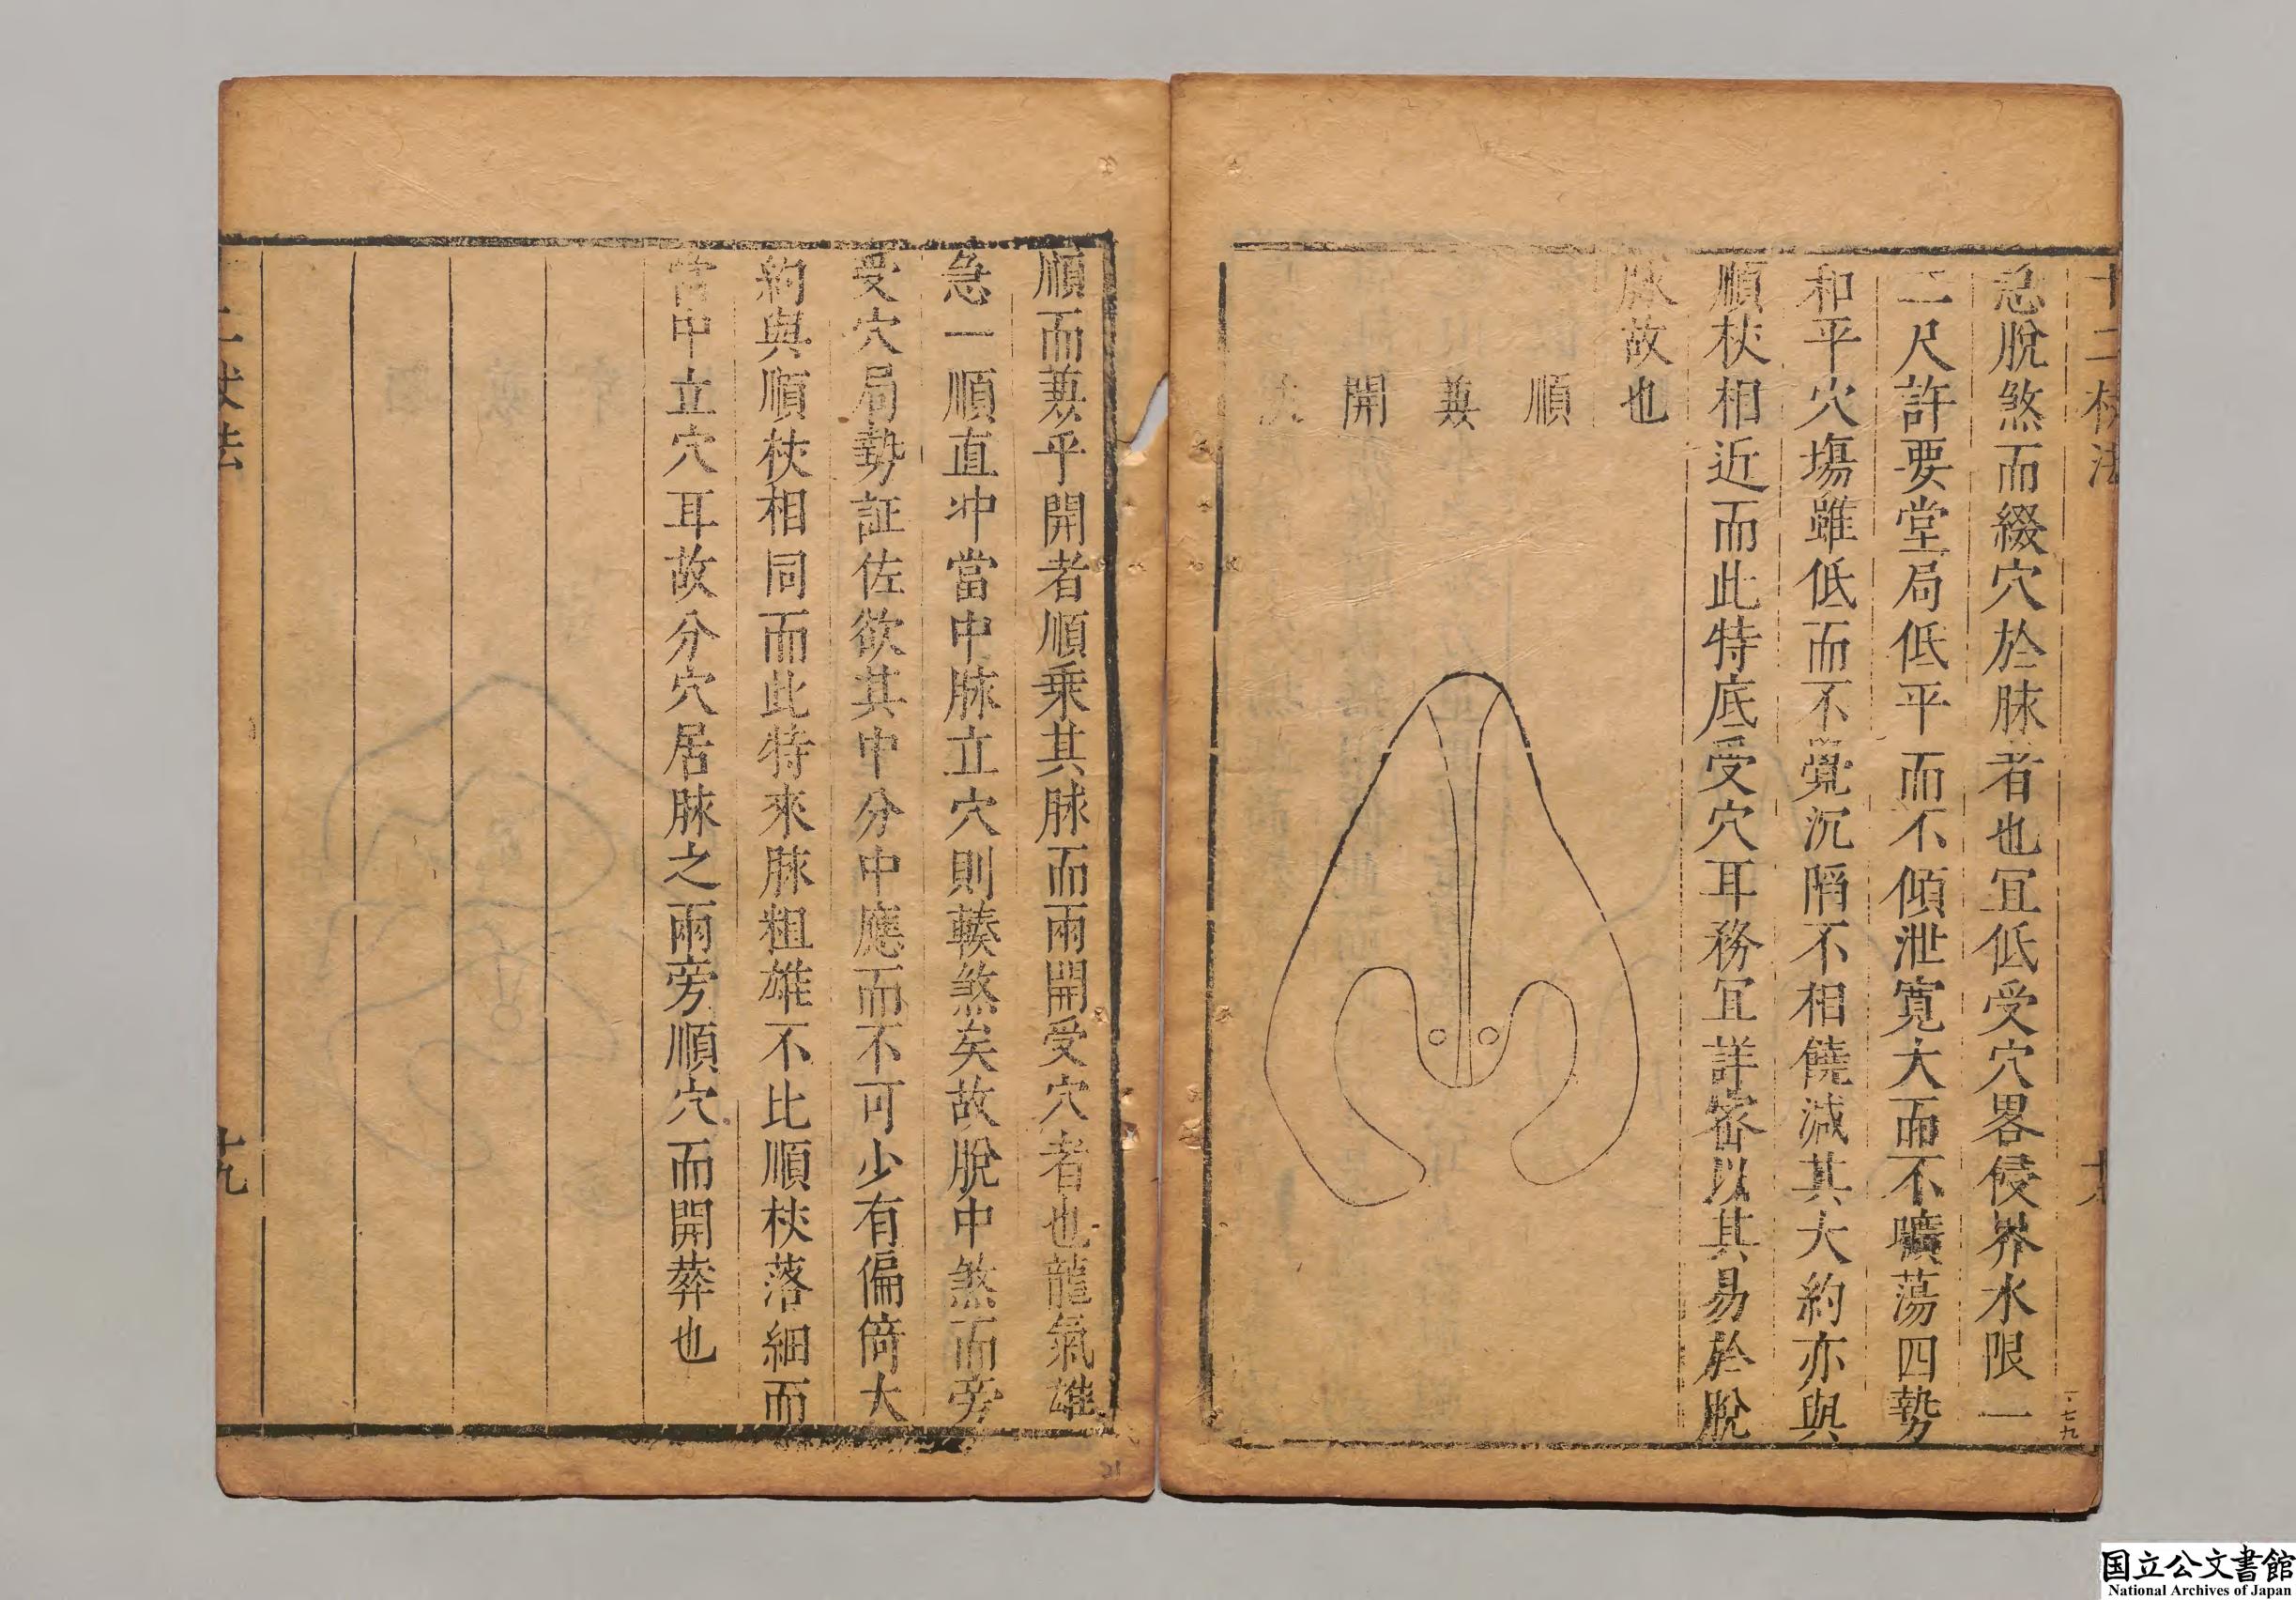 十二杖法
急脫煞而綴穴於脉者也冝低受穴畧侵界水限一
二尺許要堂局低平而不傾泄寛大而不曠蕩四勢
和平穴塲雖低而不覺沉䧟不相饒減其大約亦與
順杖相近而此特底受穴耳務冝詳密以其易於脫
脉故也
順
兼
開
杖
順而兼乎開者順乗其脉而兩開受穴者也龍氣雄
急一順直冲當中脉立穴則輳煞矣故脫中煞而旁
受穴局勢証佐欲其中分中應而不可少有偏倚大
約與順杖相同而此特來脉粗雄不比順杖落細而
當中立穴耳故分穴居脉之兩旁順穴而開葬也
二杖法
十九
一·七九
21
国立公文書館
National Archives of Japan